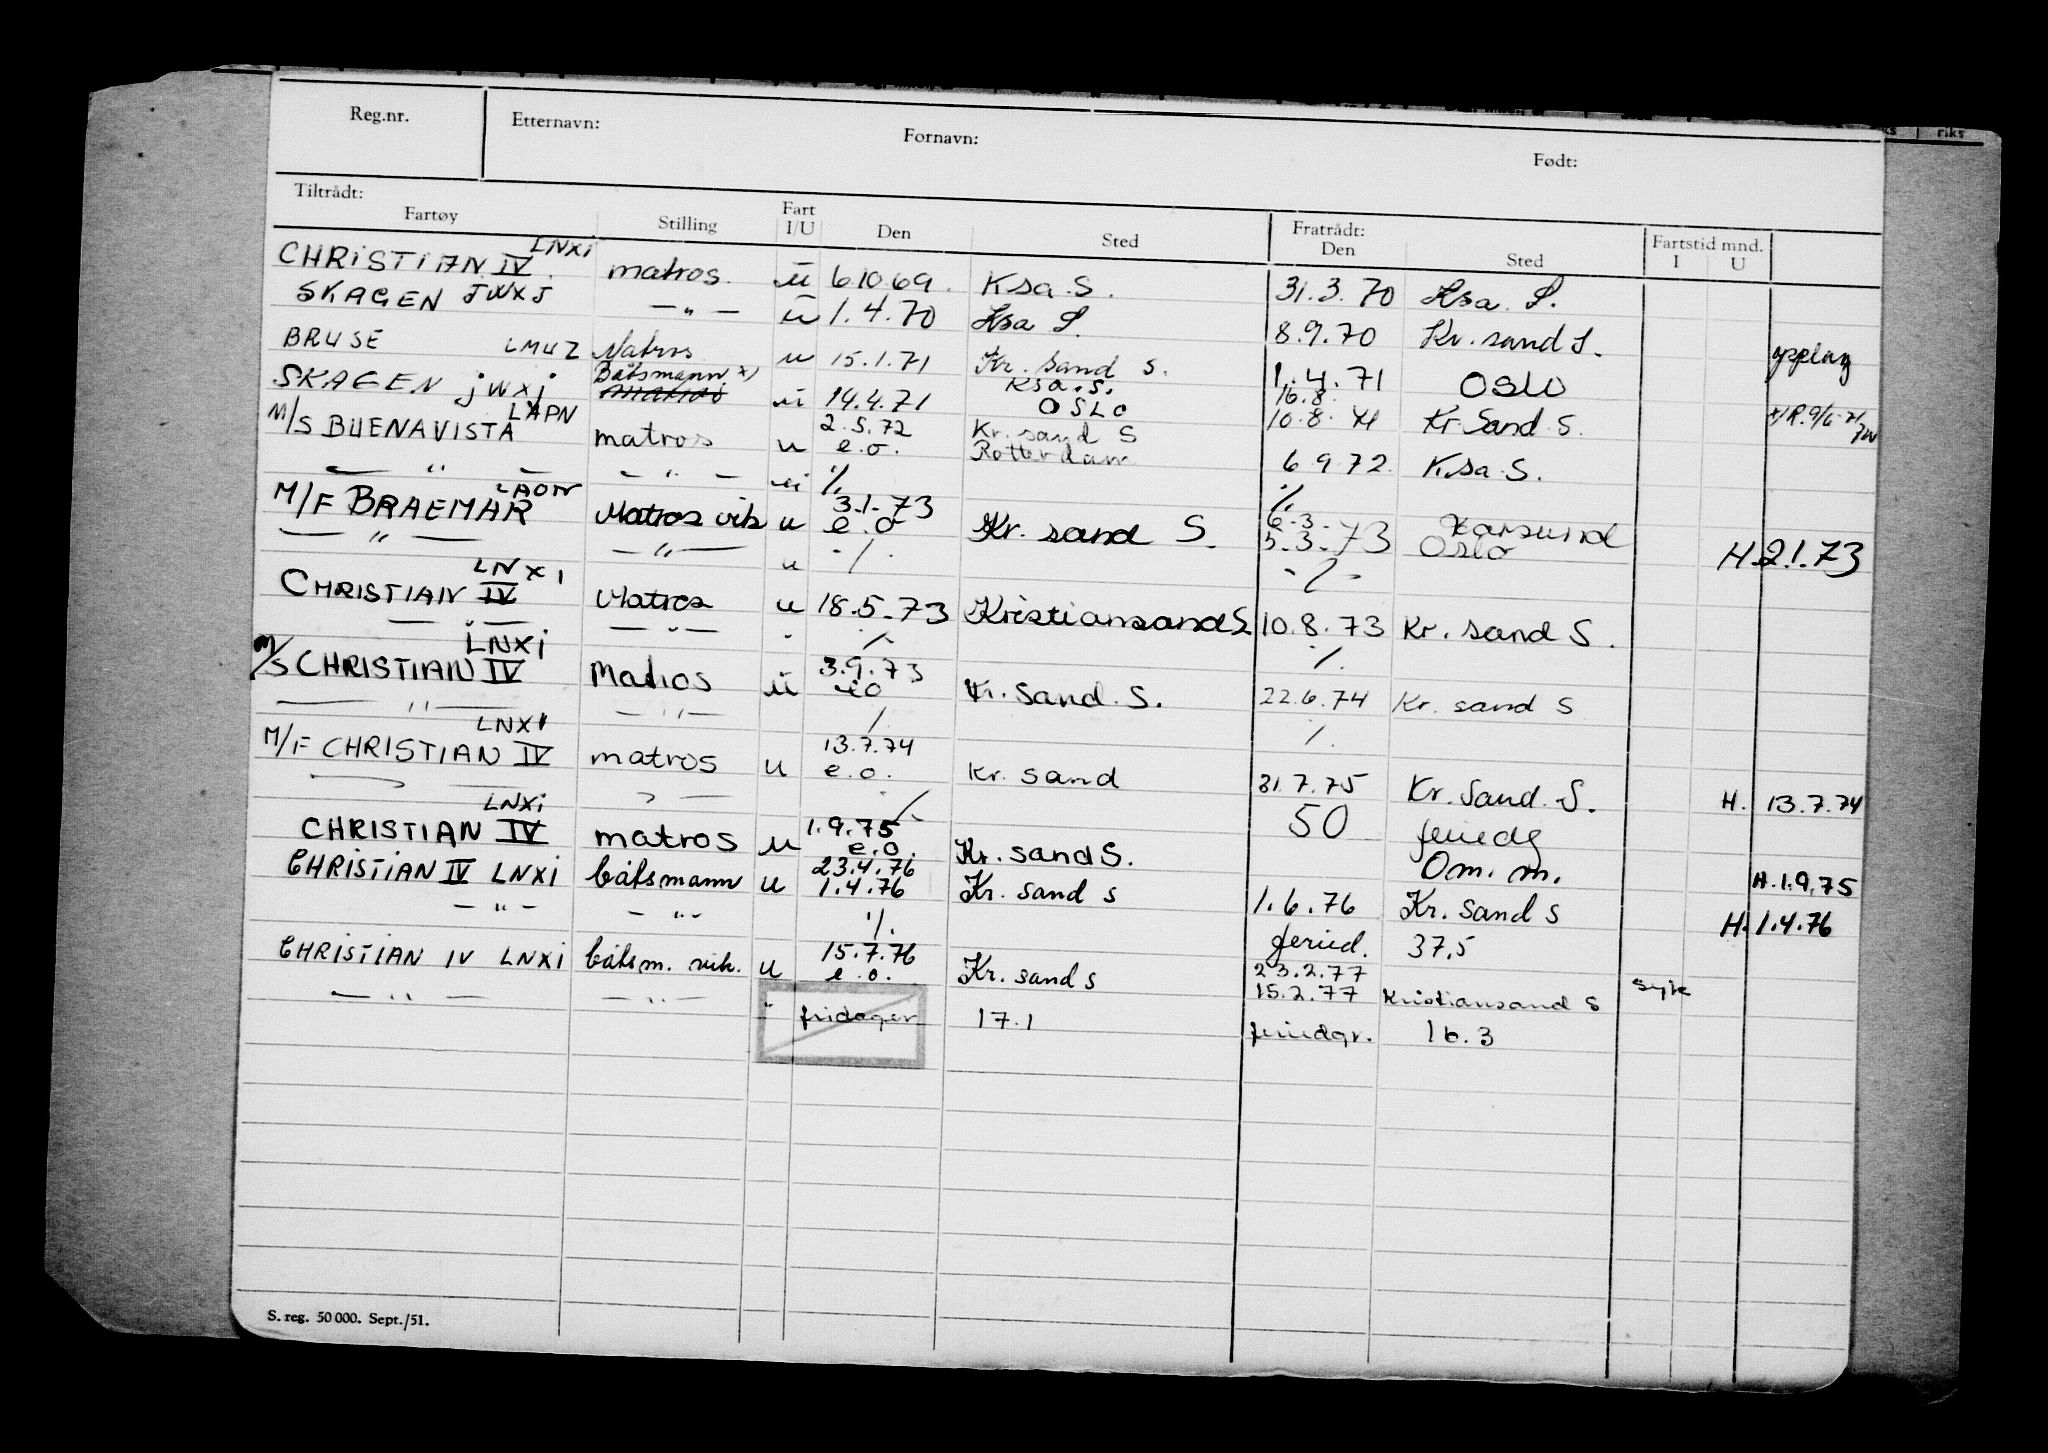 Reg.nr. Etternavn: Fornavn: Født:
Tiltrådt: Fartøy Stilling Fart I/U Den Sted Fratrådt: Den Sted Fartstid mnd. I U
CHRISTIAN IV LNXi matros ū 6.10.69. Ksa S. 31.3.70 Ksa. S.
SKAGEN JWXJ —„— ū 1.4.70 Ksa S. 8.9.70 Kr. sand S. opplag
BRUSE LMUZ Matros u 15.1.71 Kr. sand S. 1.4.71 OSLO
SKAGEN jwxj Båtsmann x) matros ū 14.4.71 Ksa. S. OSLO 16.8. 10.8.71 Kr Sand S. x) R. 9/6-71
M/S BUENAVISTA LAPN matros u 2.5.72 e.o. Kr. sand S Rotterdam 6.9.72 Ksa S.
— „ — — „ — ū ·/. ·/.
M/F BRAEMAR LAON Matros vik u 3.1.73 e.o Kr. sand S. 6.3. 5.3.73 Oslo H.2.1.73
— „ — — „ — u -/. -/-
CHRISTIAN IV LNXI Matros u 18.5.73 Kristiansand S 10.8.73 Kr. sand S.
— „ — — „ — ·/. ·/.
M/S CHRISTIAN IV LNXi Matros ū 3.9.73 eo Kr. sand. S. 22.6.74 Kr. sand S
— „ — — „ — /. /.
M/F CHRISTIAN IV LNXI matros u 13.7.74 e.o. Kr. sand 31.7.75 Kr. Sand. S. H. 13.7.74
— „ — — „ — ·/. 50 feriedg
CHRISTIAN IV LNXi matros u 1.9.75 e.o. Kr. sand S. Om. m. H.1.9.75
CHRISTIAN IV LNXi båtsmann u 23.4.76 1.4.76 Kr. sand s 1.6.76 Kr. sand s H.1.4.76
— „ — — „ — ·/. feried. 37,5
CHRISTIAN IV LNXi båtsm. vik. u 15.7.76 e.o. Kr. sand s 23.2.77 15.2.77 Kristiansand S syk
— „ — — „ — „ fridager 17.1 feriedgr. 16.3
S. reg. 50 000. Sept./51.